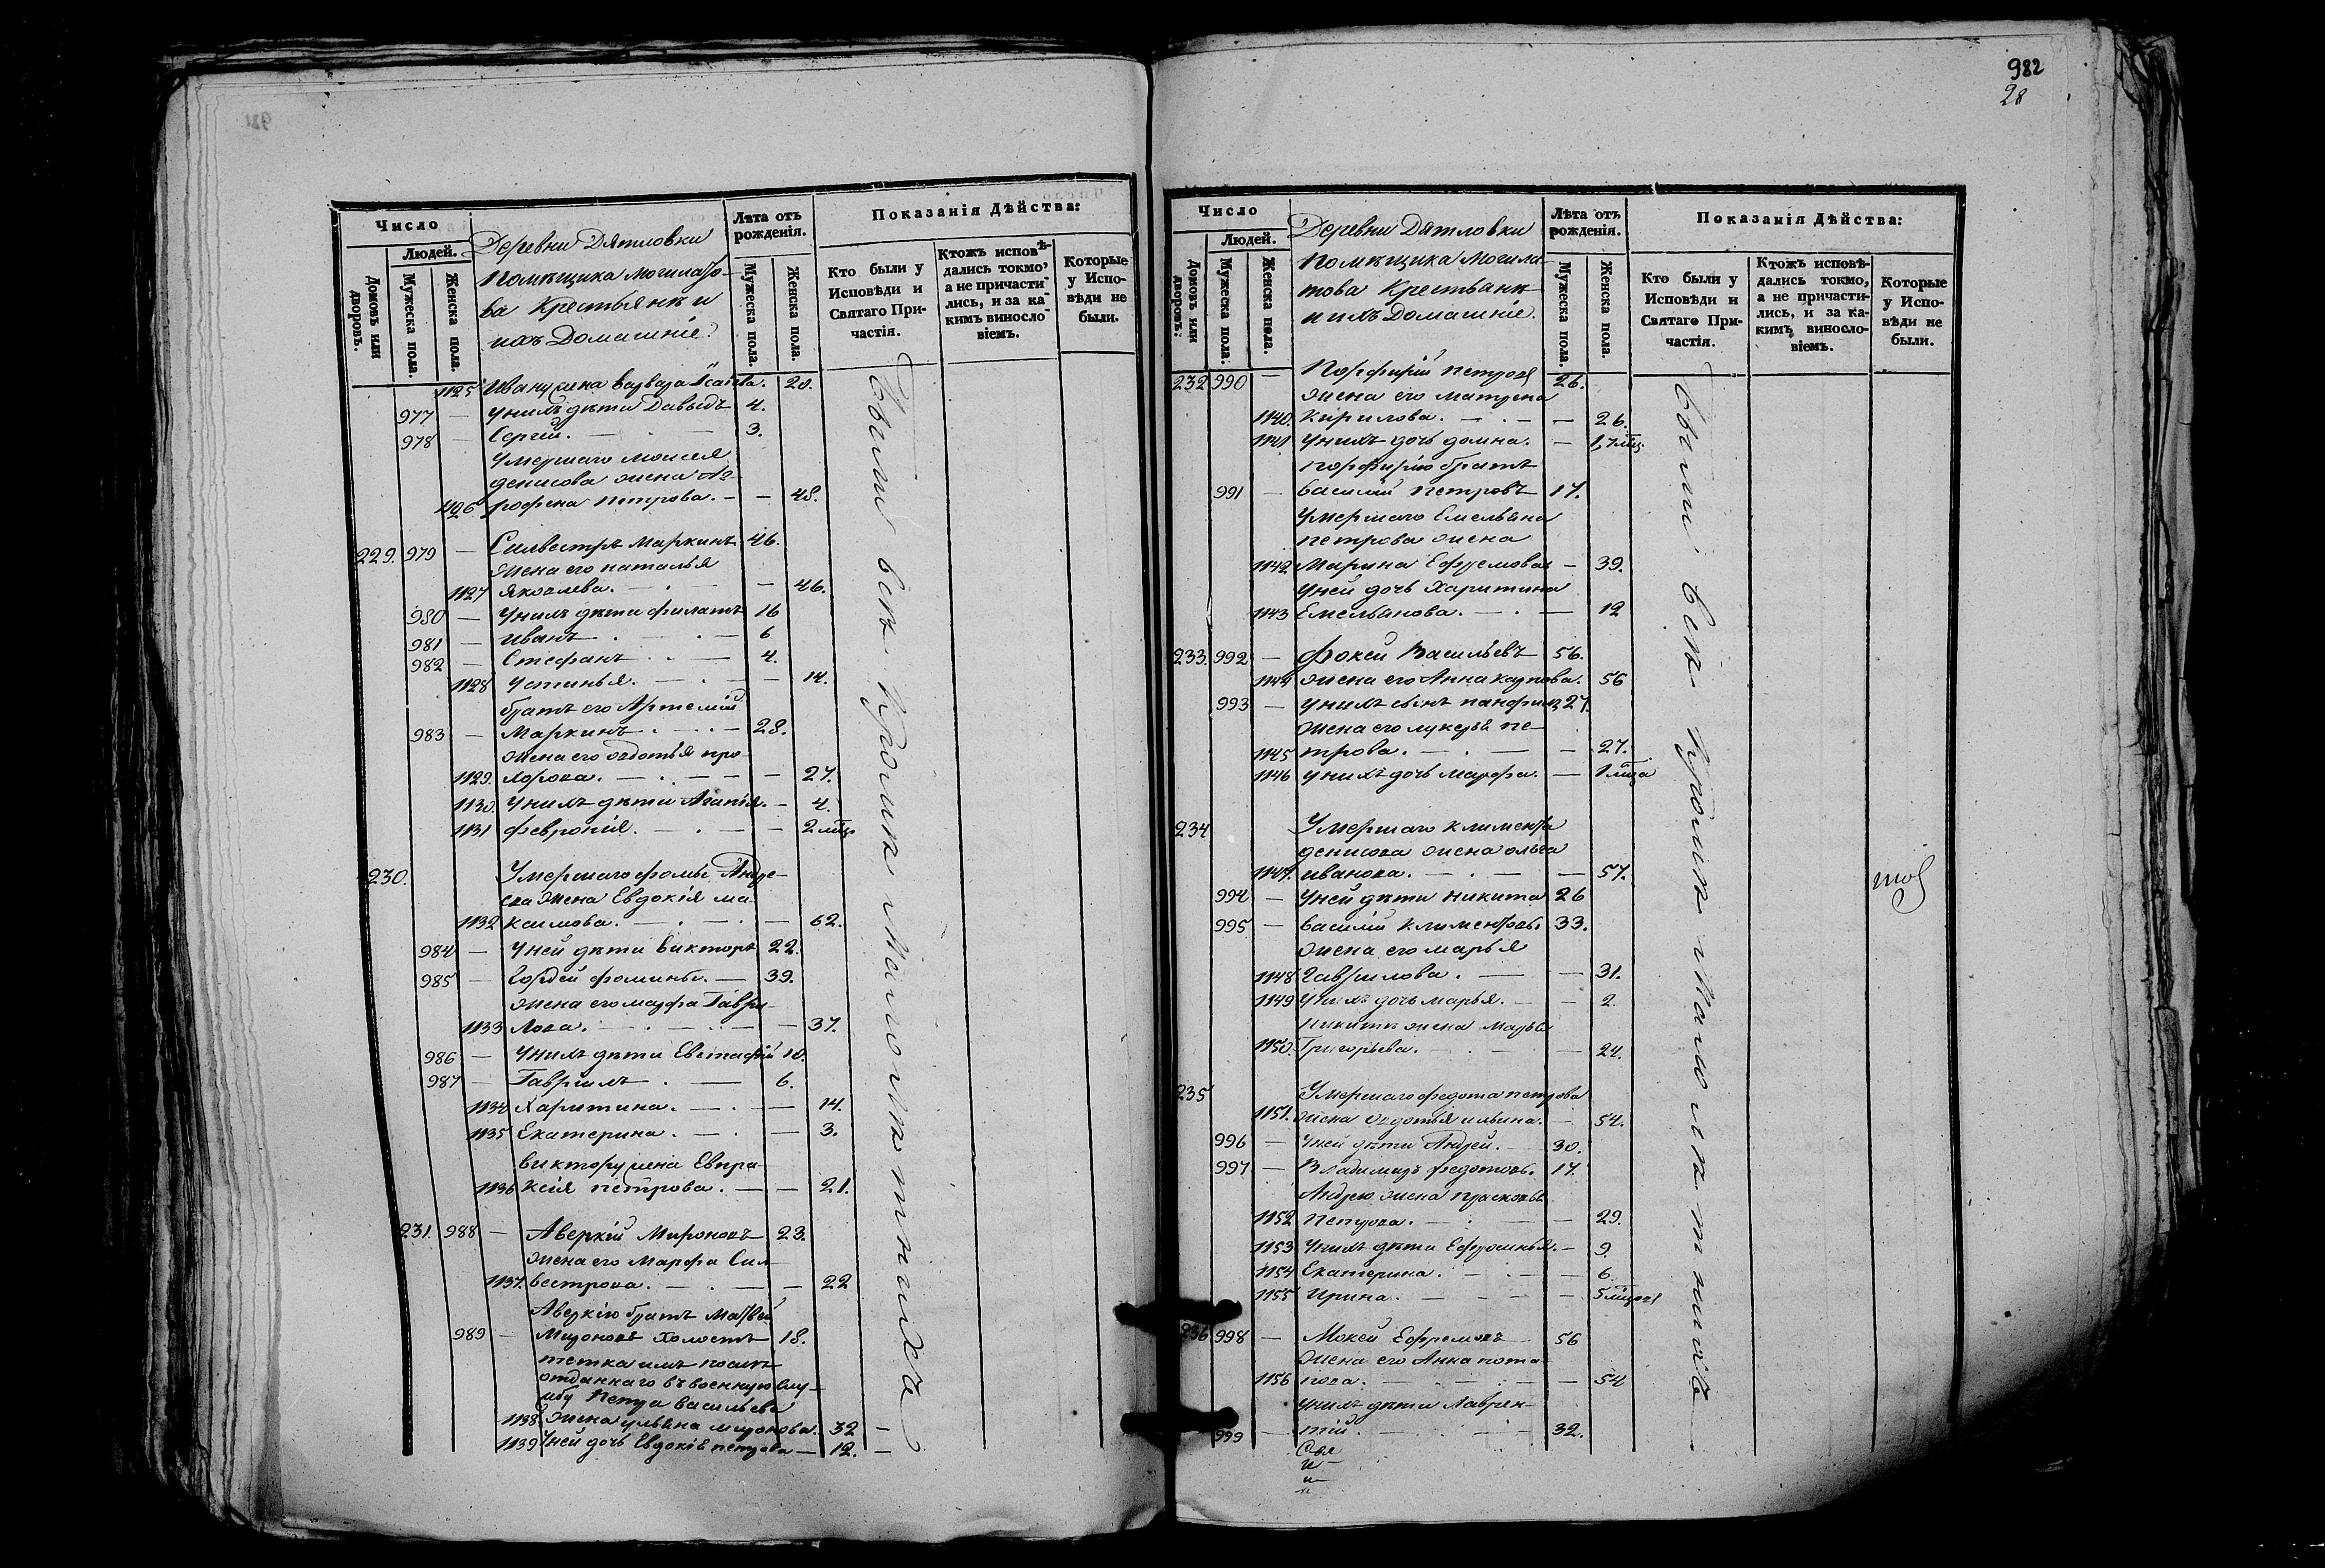 982
28
Число
Людей.
Домовъ или дворовъ.
Мужеска пола.
Женска пола.
Деревни Дятловки
Помѣщика Могилато-
ва Крестьянѣ и
ихъ Домашніе.
Лѣта отъ рожденія.
Мужеска пола.
Женска пола.
Показанія Дѣйства:
Кто были у Исповѣди и Святаго Причастія.
Ктожъ исповѣдались токмо, а не причастились, и за какимъ винословіемъ.
Которые у Исповѣди не были.
1125 Ивану жена Варвара Исаіева. 20.
977 — У нихъ дѣти Давыдъ 4.
978 — Сергій. — 3.
Умершаго Моисея
Денисова жена Аг-
1126 рофена Петрова. — — 48.
229. 979 — Силвестръ Маркинъ 46.
жена его Наталья
1127 Яковлева. — — 46.
980 — У нихъ дѣти Филатъ 16
981 — Иванъ . — . — 6
982 — Стефанъ . . — 4.
1128 Устинья. — . — — 14.
братъ его Артемій
983 — Маркинъ . — . — 28.
жена его Авдотья Про-
1129. хорова. — . — — — 27.
1130. У нихъ дѣти Агапія. — 4.
1131 Февронія. — . — — 2 мца
230. Умершаго Фомы Андре-
ева жена Евдокія Ма-
1132 ксимова. — . — — 62.
984 — У ней дѣти Викторъ 22.
985 — Гордей Фомины. — 39.
жена его Марфа Гаври-
1133 лова. — . — . — — 37.
986 — У нихъ дѣти Евстафій 10.
987 — Гавріилъ . — 6.
1134 Харитина. — . — — 14.
1135 Екатерина. — . — — 3.
Виктору жена Евпра-
1136 ксія Петрова. — — 21.
231. 988 — Аверкій Мироновъ 23.
жена его Марфа Сил-
1137. вестрова. — . — — 22
Аверкію братъ Матвей
989 — Мироновъ холостъ 18.
тетка имъ послѣ
отданнаго въ военную слу-
жбу Петра Васильева
1138. жена Ульяна Миронова. 32 —
1139 У ней дочь Евдокія Петрова — 12. —
Были всѣ кромѣ малолѣтнихъ
Число
Людей.
Домовъ или дворовъ.
Мужеска пола.
Женска пола.
Деревни Дятловки
Помѣщика Могила-
това Крестьянѣ
и ихъ Домашніе.
Лѣта отъ рожденія.
Мужеска пола.
Женска пола.
Показанія Дѣйства:
Кто были у Исповѣди и Святаго Причастія.
Ктожъ исповѣдались токмо, а не причастились, и за какимъ винословіемъ.
Которые у Исповѣди не были.
232 990 — Порфирій Петровъ 26.
жена его Матрена
1140. Кирилова. — . — — 26.
1141 У нихъ дочь Домна. — 1,7 мц.
Порфирію братъ
991 — Василій Петровъ 17.
Умершаго Емельяна
Петрова жена
1142 Марина Ефремова — 39.
У ней дочь Харитина
1143 Емельянова. — . — 12
233. 992 — Фокей Васильевъ 56.
1144 жена его Анна Карпова. 56
993 — У нихъ сынъ Панфилъ 27.
жена его Лукерья Пе-
1145 трова. — . — — 27.
1146 У нихъ дочь Марфа. — 1 мца
234 Умершаго Климента
Денисова жена Ольга
1147. Иванова. — . — — 57.
994 — У ней дѣти Никита 26
995 — Василій Климентовы 33.
жена его Марья
1148 Гаврилова. — — 31.
1149 У нихъ дочь Марья. — — 2.
Никитѣ жена Марья
1150. Григорьева. — . — 24.
235 Умершаго Федота Петрова
1151. жена Авдотья Ильина. — 54.
996 — У ней дѣти Андрей. — 30.
997 — Владимиръ Федотовы. 17.
Андрею жена Прасковья
1152 Петрова. — . — — 29.
1153 У нихъ дѣти Ефросинья. — 9.
1154 Екатерина. — . — — 6.
1155 Ирина. — — — 5 мцовъ
236 998 — Мокей Ефремовъ 56
жена его Анна Пота-
1156 пова. — — — 54
У нихъ дѣти Лаврен-
999 — тій. — . — — 32.
Были всѣ кромѣ малолѣтнихъ